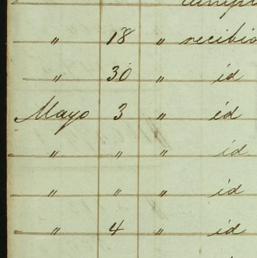 " 18 " recibio
" 30 " id
Mayo 3 " id
" " " id
" " " id
" 4 " id